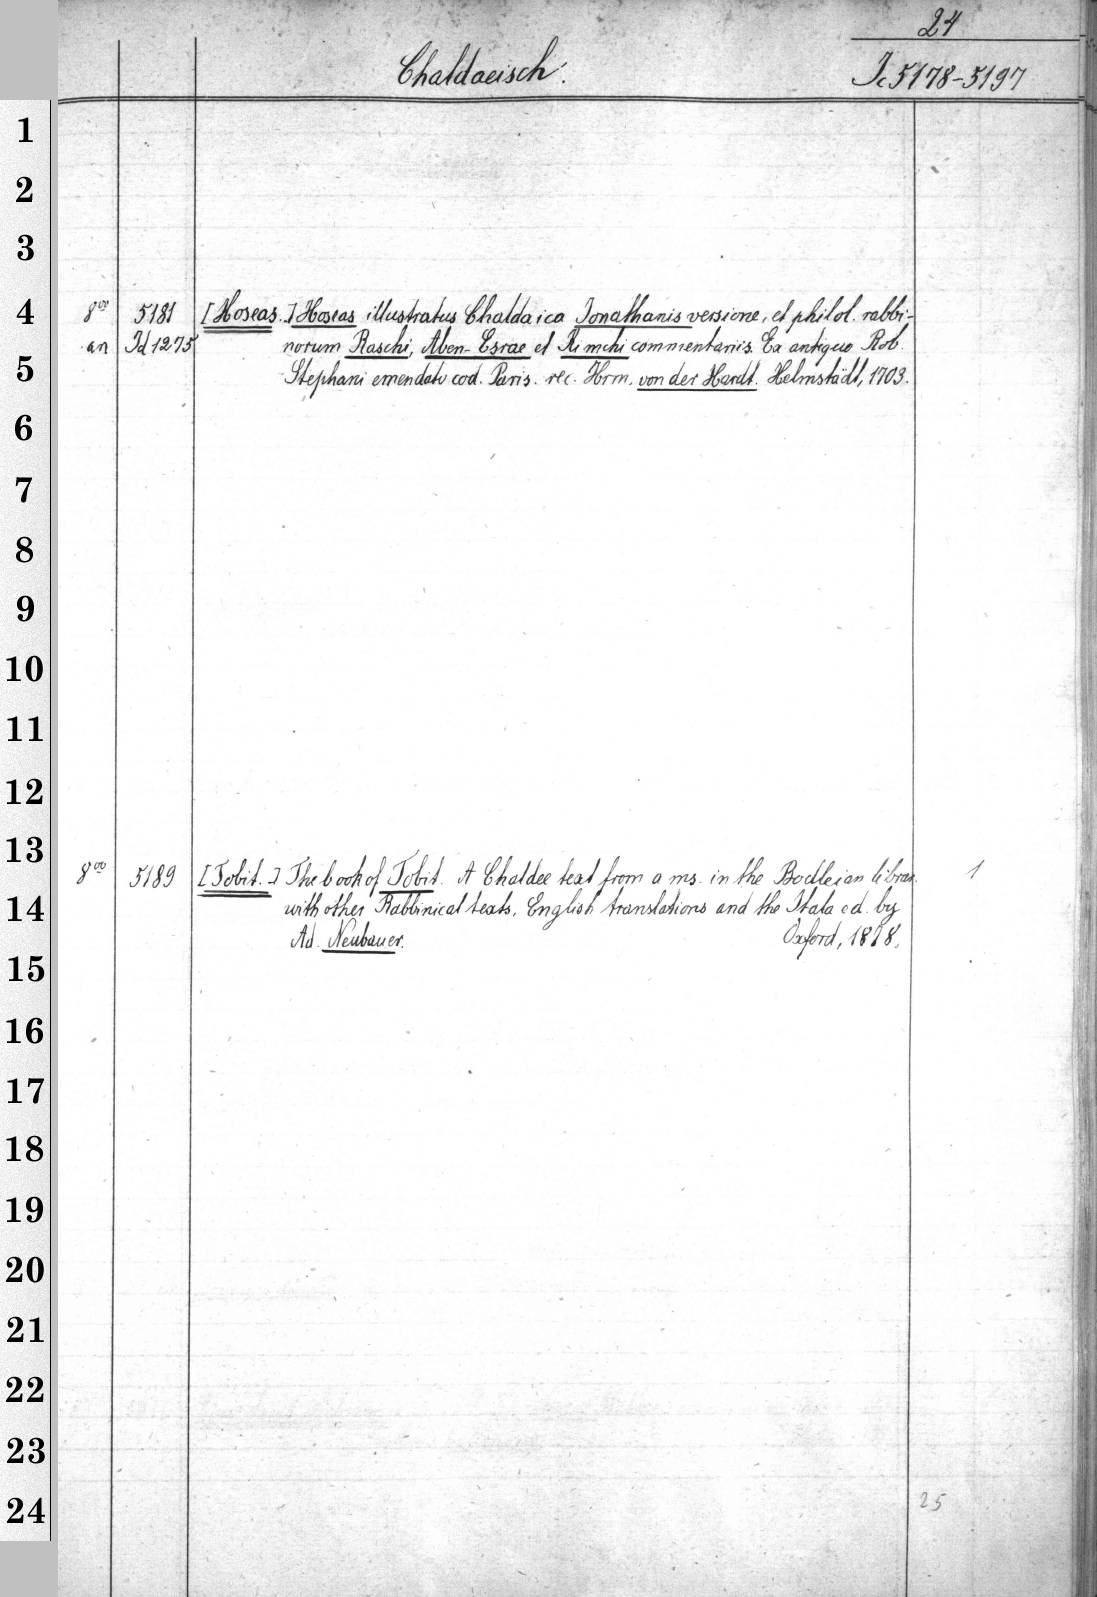 24
Chaldaeisch.
Ic 5178-5197
1
2
3
4
5
6
7
8
9
10
11
12
13
14
15
16
17
18
19
20
21
22
23
24
8vo 5181 [Hoseas.] Hoseas illustratus Chaldaica Jonathanis versione, et philol. rabbi-
an Id 1275 norum Raschi, Aben-Esrae et Kimchi commentariis. Ex antiquo Rob.
Stephani emendato cod. Paris. rec. Hrm. von der Hardt. Helmstädt, 1703.
8vo 5189 [Tobit.] The book of Tobit. A Chaldee text from a ms. in the Bodleian librar. 1
with other Rabbinical texts, English translations and the Itala ed. by
Ad. Neubauer. Oxford, 1878.
25